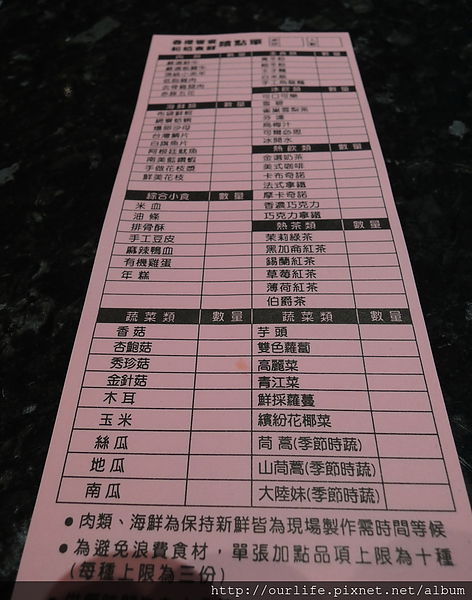 香港譽宴
蛤蛤煮鮮 請點單
肉類 數量
去骨雞腿肉
海鮮類 數量
白旗魚片
阿根廷魷魚
南美藍鑽蝦
手做花枝漿
鮮美花枝
綜合小食 數量
米血
油條
排骨酥
手工豆皮
麻辣鴨血
有機雞蛋
年糕
主食類 數量
冰飲類 數量
可口可樂
雪碧
芬達
烏梅汁
可爾必思
冰開水
熱飲類 數量
金選奶茶
美式咖啡
卡布奇諾
法式拿鐵
摩卡奇諾
香濃巧克力
巧克力拿鐵
熱茶類 數量
茉莉綠茶
黑加侖紅茶
錫蘭紅茶
草莓紅茶
薄荷紅茶
伯爵茶
蔬菜類 數量
香菇
杏鮑菇
秀珍菇
金針菇
木耳
玉米
絲瓜
地瓜
南瓜
蔬菜類 數量
芋頭
雙色蘿蔔
高麗菜
青江菜
鮮採蘿蔓
繽紛花椰菜
茼蒿(季節時蔬)
山茼蒿(季節時蔬)
大陸妹(季節時蔬)
●肉類、海鮮為保持新鮮皆為現場製作需時間等候
●為避免浪費食材，單張加點品項上限為十種
(每種上限為三份)
http://ourlife.pixnet.net/album